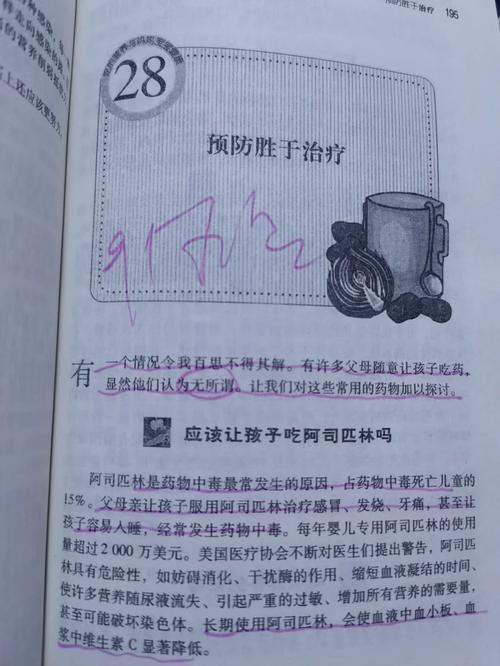 预防胜于治疗 195
28
预防胜于治疗
有一个情况令我百思不得其解。有许多父母随意让孩子吃药，
显然他们认为无所谓。让我们对这些常用的药物加以探讨。
应该让孩子吃阿司匹林吗
阿司匹林是药物中毒最常发生的原因，占药物中毒死亡儿童的
15%。父母亲让孩子服用阿司匹林治疗感冒、发烧、牙痛，甚至让
孩子容易入睡，经常发生药物中毒。每年婴儿专用阿司匹林的使用
量超过2 000万美元。美国医疗协会不断对医生们提出警告，阿司匹
林具有危险性，如妨碍消化、干扰酶的作用、缩短血液凝结的时间、
使许多营养随尿液流失、引起严重的过敏、增加所有营养的需要量，
甚至可能破坏染色体。长期使用阿司匹林，会使血液中血小板、血
浆中维生素C显著降低。